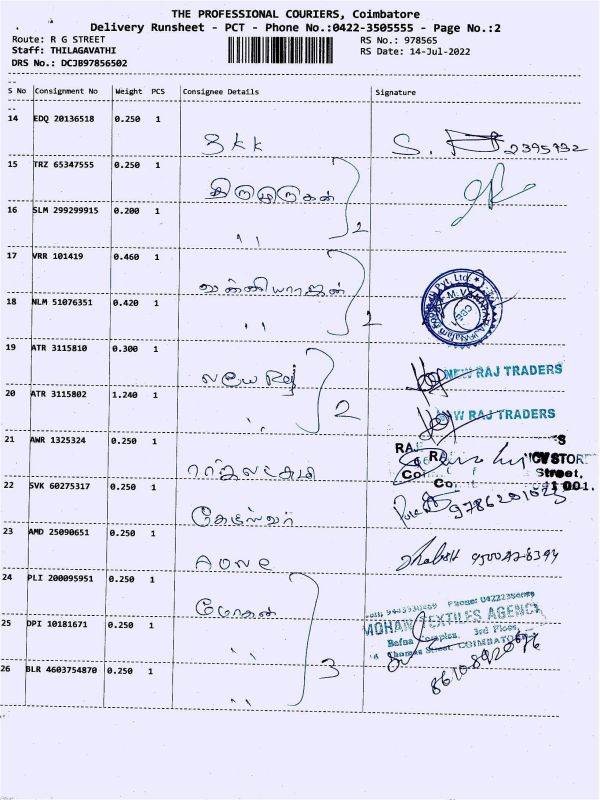 THE PROFESSIONAL COURIERS, Coimbatore
Delivery Runsheet - PCT - Phone No.:0422-3505555 - Page No.:2
Route: R G STREET
RS No.: 978565
Staff: THILAGAVATHI
RS Date: 14-Jul-2022
DRS No.: DCJB97856502
S No Consignment No Weight PCS Consignee Details Signature
14 EDQ 20136518 0.250 1
S.
15 TRZ 65347555 0.250 1
திருமுருகன்
2
16 SLM 299299915 0.200 1
,,
17 VRR 101419 0.460 1
18 NLM 51076351 0.420 1
,,
19 ATR 3115810 0.300 1
New Raj
NEW RAJ TRADERS
20 ATR 3115802 1.240 1
,, 2
NEW RAJ TRADERS
21 AWR 1325324 0.250 1
ராஜலட்சுமி
Street,
22 SVK 60275317 0.250 1
23 AMD 25090651 0.250 1
AONE
24 PLI 200095951 0.250 1
மோகன்
MOHAN TEXTILES AGENCY
25 DPI 10181671 0.250 1
,,
Complex, 3rd Floor,
Thomas Street, COIMBATORE
3
26 BLR 4603754870 0.250 1
,,